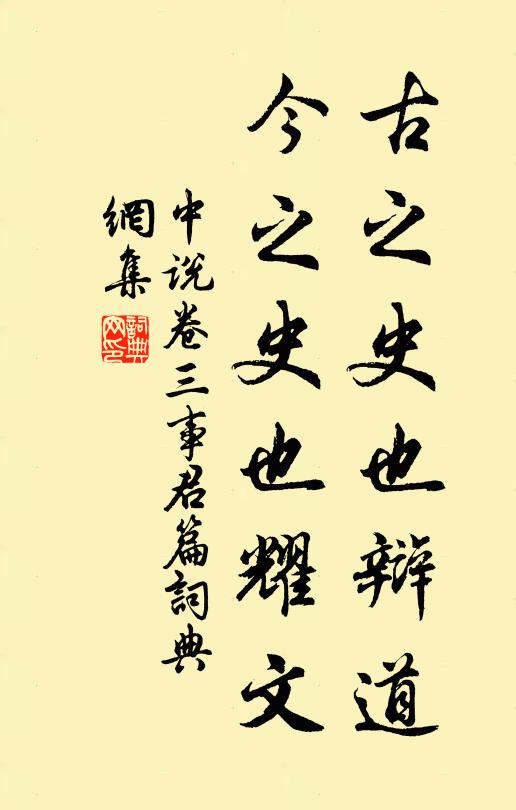 古之史也辯道
今之史也耀文
中说卷三事君篇詞典
網集
詞典
网印